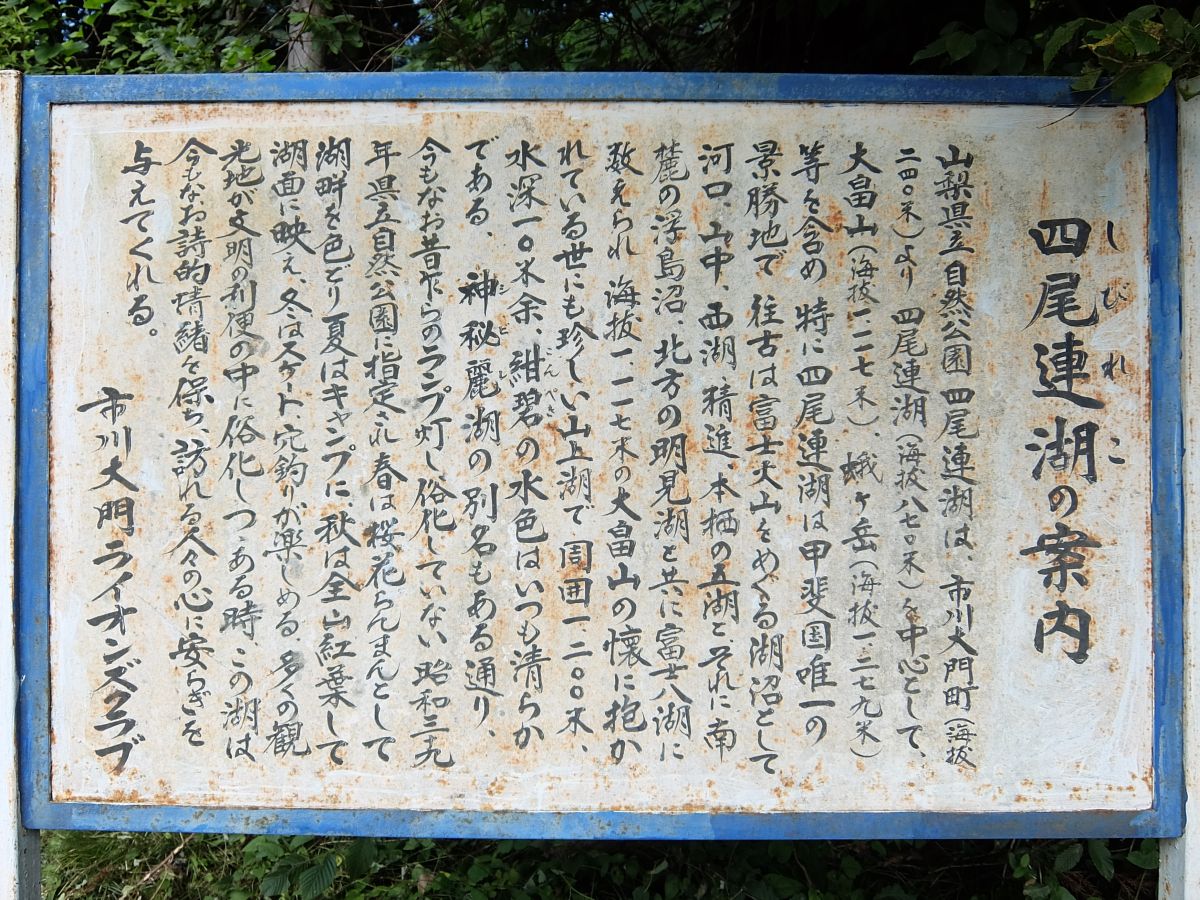 四尾連湖の案内
しびれこ
山梨県立自然公園 四尾連湖は、市川大門町(海抜
二四〇米)より 四尾連湖(海抜八七〇米)を中心として、
大畠山(海抜一一一七米)、蛾ヶ岳(海抜一、二七九米)
等を含め 特に四尾連湖は甲斐国唯一の
景勝地で 往古は富士大山をめぐる湖沼として
河口、山中、西湖、精進、本栖の五湖と、それに南
麓の浮島沼、北方の明見湖と共に富士八湖に
数えられ 海抜一、一一七米の大畠山の懐に抱か
れている世にも珍しい山上湖で 周囲一、二〇〇米、
水深一〇米余、紺碧の水色はいつも清らか
こんぺき
である、 神秘麗湖の別名もある通り、
しびれ
今もなお昔乍らのランプ灯し、俗化していない 昭和三九
年県立自然公園に指定され 春は桜花らんまんとして
湖畔を色どり 夏はキャンプに、秋は全山紅葉して
湖面に映え、冬はスケート、穴釣りが楽しめる、多くの観
光地が文明の利便の中に俗化しつゝある時、この湖は
今もなお詩的情緒を保ち、訪れる人々の心に安らぎを
与えてくれる。
市川大門ライオンズクラブ